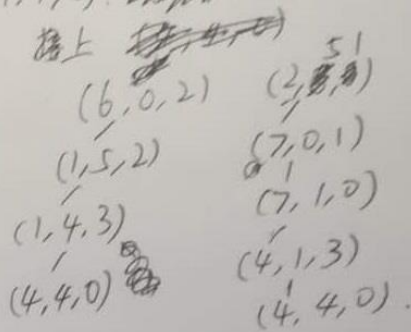 接上
(6,0,2)
(1,5,2)
(1,4,3)
(4,4,0)
5 1
(2, , )
(7,0,1)
(7,1,0)
(4,1,3)
(4,4,0).